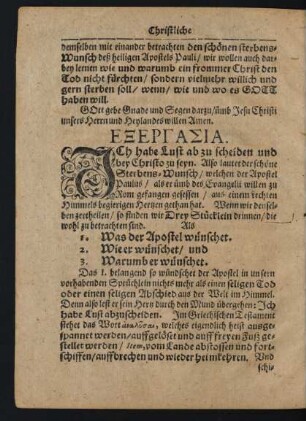 Christliche
demselben mit einander betrachten den schönen sterbens-
Wunsch deß heiligen Apostels Pauli / wir wollen auch dar-
bey lernen wie und warumb ein frommer Christ den
Tod nicht fürchten / sondern vielmehr willich und
gern sterben soll / wenn / wie und wo es GOTT
haben will.
GOtt gebe Gnade und Segen darzu / ümb Jesu Christi
unsers Herrn und Heylandes willen Amen.
ΕΞΕΡΓΑΣΙΑ.
ICh habe Lust ab zu scheiden und
bey Christo zu seyn. Also lautet der schöne
Sterbens-Wunsch / welchen der Apostel
Paulus / als er ümb des Evangelii willen zu
Rom gefangen gesessen / aus einem rechten
Himmels begierigen Hertzen gethan hat. Wenn wir densel-
ben zertheilen / so finden wir Drey Stücklein drinnen / die
wohl zu betrachten sind. Als
1. Was der Apostel wünschet.
2. Wie er wünschet / und
3. Warumb er wünschet.
Das 1. belangend so wündschet der Apostel in unsern
vorhabenden Sprüchlein nichts mehr als einen seligen Tod
oder einen seligen Abschied aus der Welt im Himmel.
Denn also lest er sein Hertz durch den Mund übergehen: Ich
habe Lust abzuscheiden. Im Griechischen Testament
stehet das Wort ἀναλῦσαι, welches eigendlich heist ausge-
spannet werden / auffgelöset und auff freyen Fuß ge-
stellet werden / Item, vom Lande abstossen und fort-
schiffen / auffbrechen und wieder heimkehren. Und
schi-